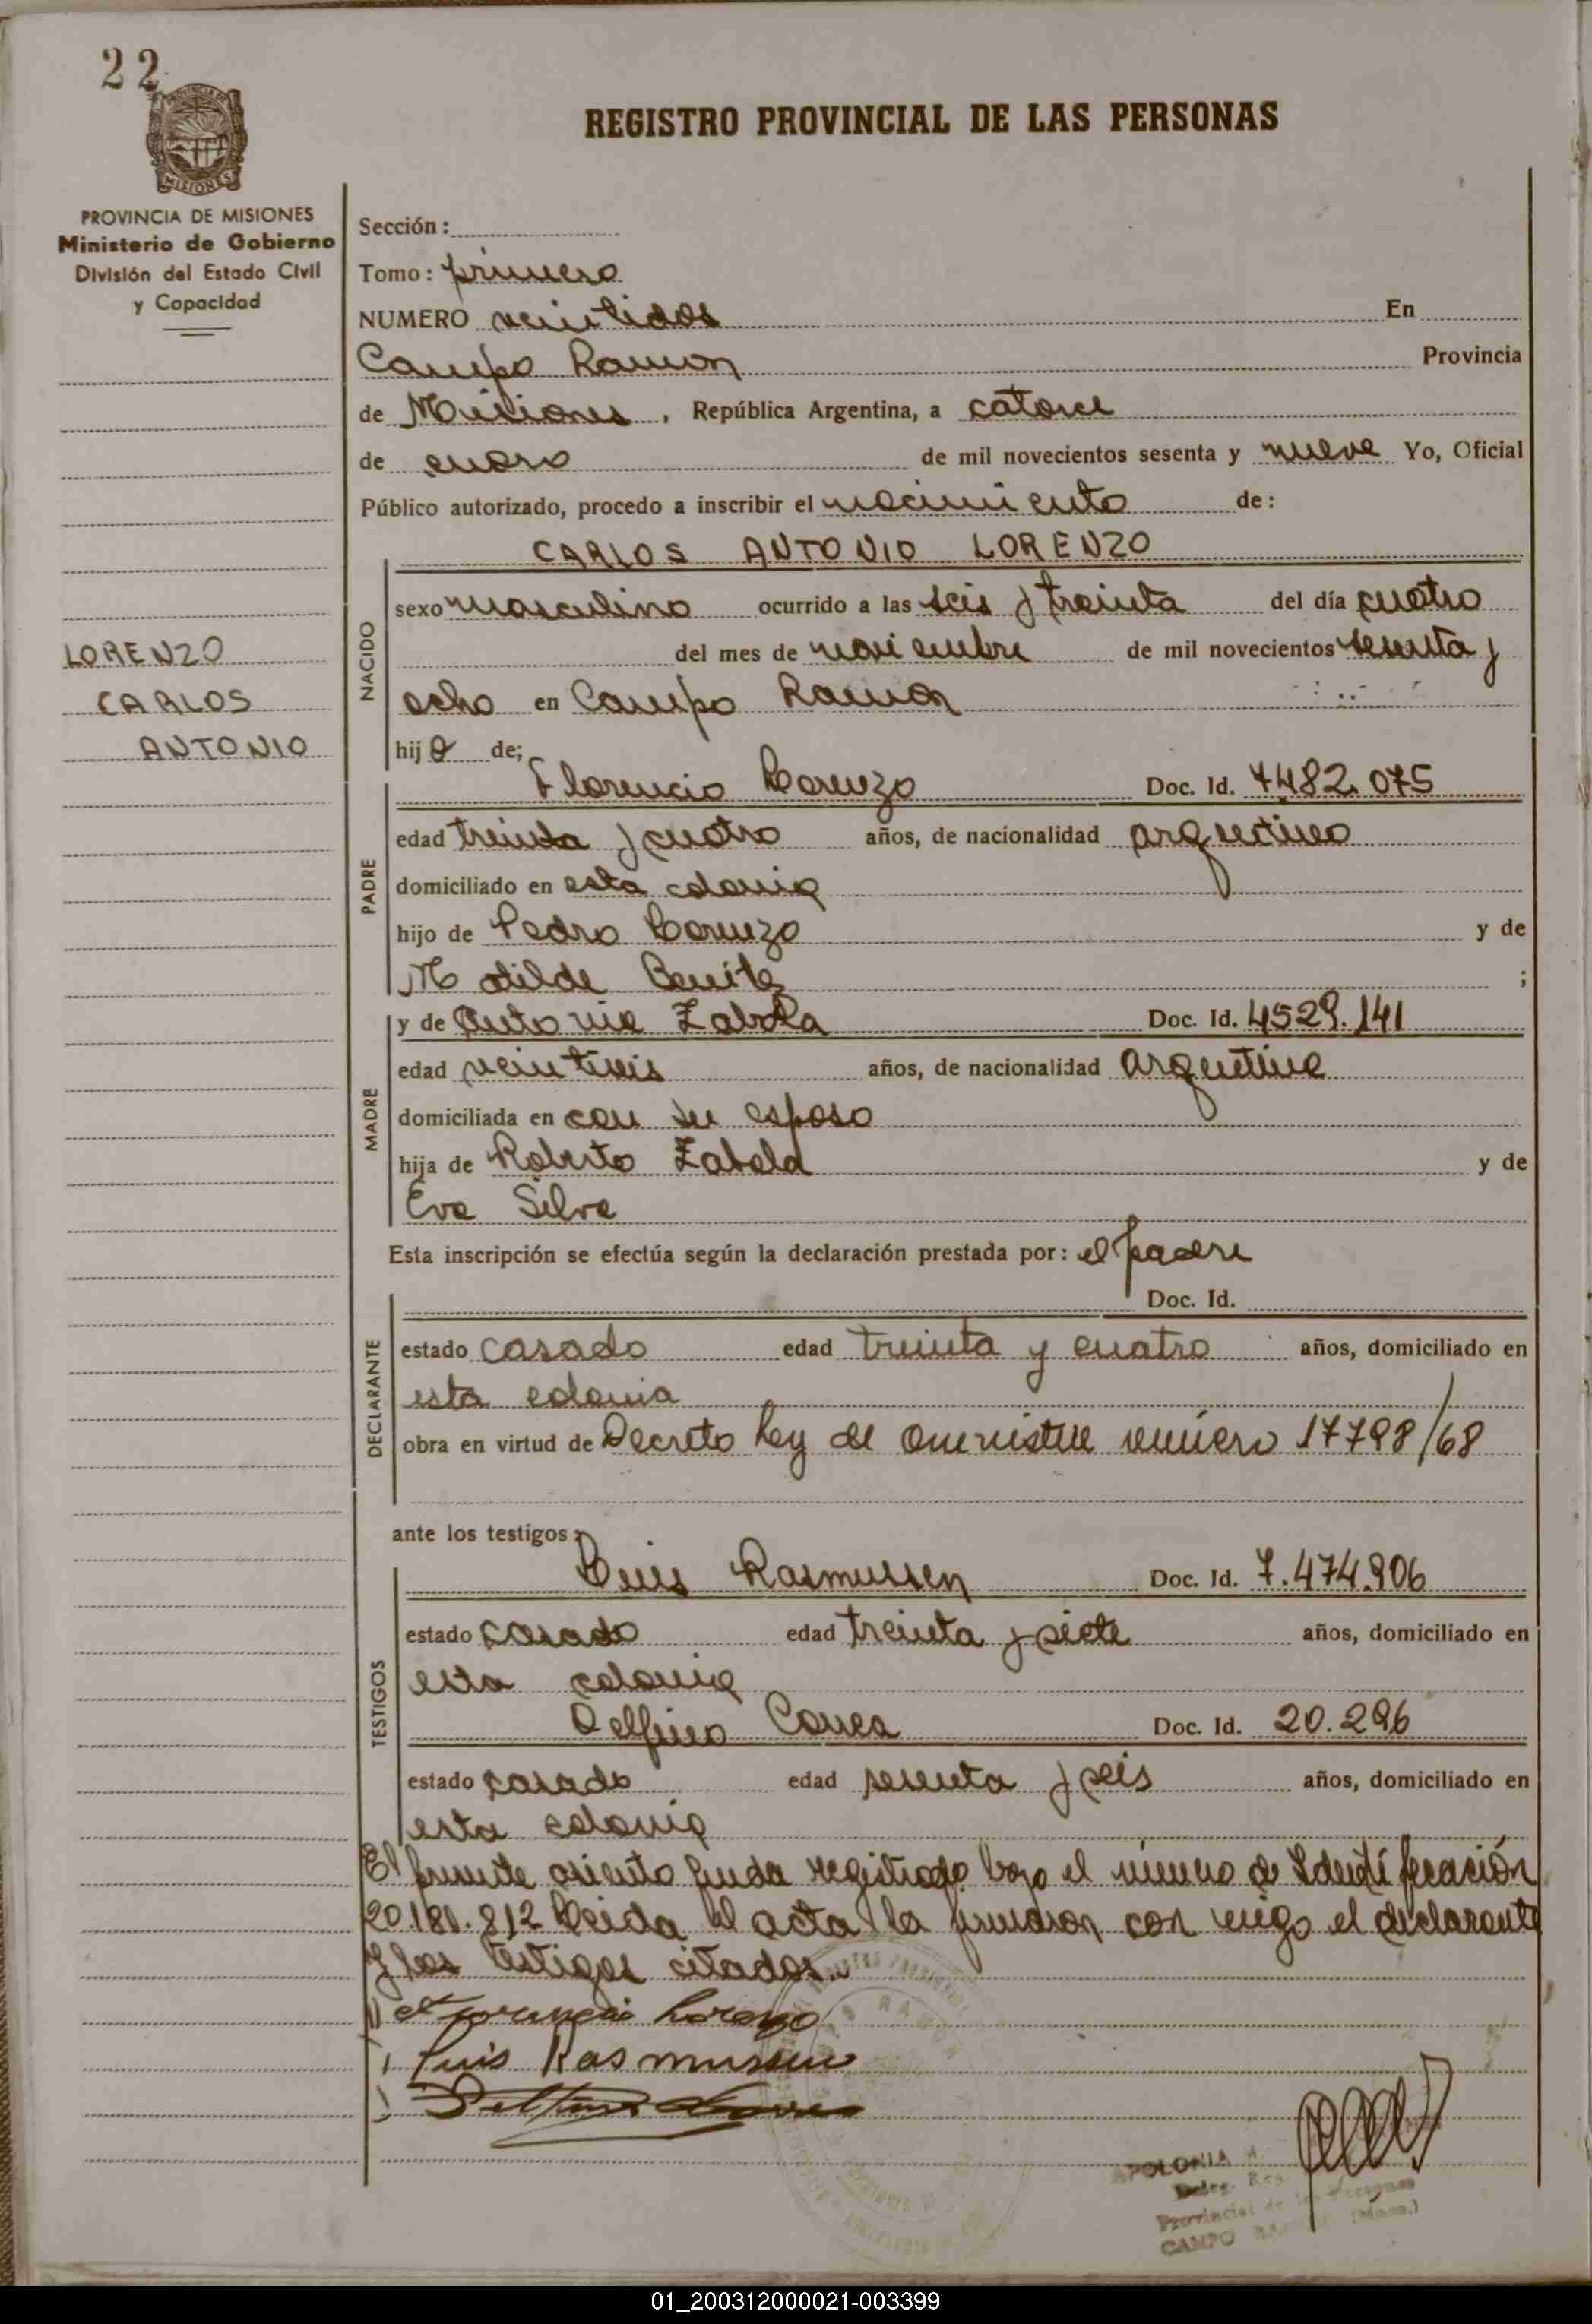 22
PROVINCIA DE MISIONES
MISIONES
PROVINCIA DE MISIONES
Ministerio de Gobierno
División del Estado Civil
y Capacidad
LORENZO
CARLOS
ANTONIO
REGISTRO PROVINCIAL DE LAS PERSONAS
Sección:
Tomo: primero
NUMERO veintidos En
Campo Ramon Provincia
de Misiones, República Argentina, a catorce
de enero de mil novecientos sesenta y nueve Yo, Oficial
Público autorizado, procedo a inscribir el nacimiento de:
CARLOS ANTONIO LORENZO
NACIDO
sexo masculino ocurrido a las seis y treinta del día cuatro
del mes de noviembre de mil novecientos sesenta y
ocho en Campo Ramon
hijo de;
PADRE
Florencio Lorenzo Doc. Id. 7482.075
edad treinta y cuatro años, de nacionalidad argentino
domiciliado en esta colonia
hijo de Pedro Lorenzo y de
Matilde Benitez ;
MADRE
y de Antonia Zabala Doc. Id. 4529.141
edad veintiseis años, de nacionalidad argentina
domiciliada en con su esposo
hija de Roberto Zabala y de
Eva Silva
Esta inscripción se efectúa según la declaración prestada por: el padre
DECLARANTE
Doc. Id.
estado casado edad treinta y cuatro años, domiciliado en
esta colonia
obra en virtud de Decreto Ley de amnistia número 17798/68
ante los testigos:
TESTIGOS
Luis Rasmussen Doc. Id. 7.474.906
estado casado edad treinta y siete años, domiciliado en
esta colonia
Delfino Correa Doc. Id. 20.296
estado casado edad sesenta y seis años, domiciliado en
esta colonia
El presente asiento queda registrado bajo el número de Identificación
20.180.812 Leida el acta la firmaron con migo el declarante
y los testigos citados.
Florencio Lorenzo
Luis Rasmussen
Delfino Correa
APOLONIA
Deleg. Reg.
Provincial de las Personas
CAMPO RAMON (Mnes.)
01_200312000021-003399